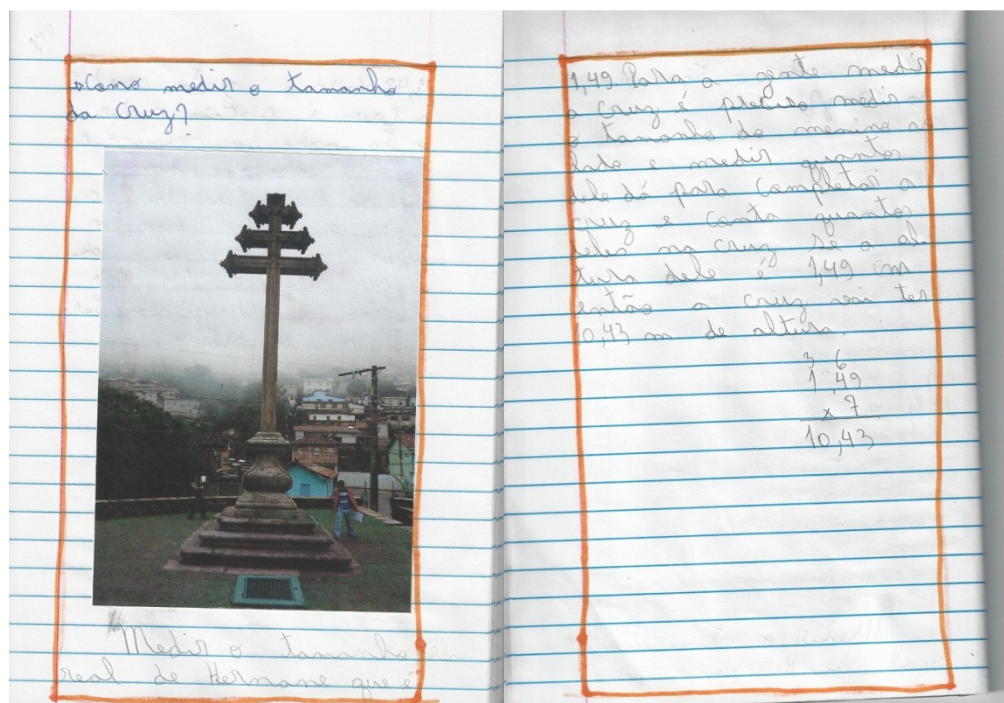 Como medir o tamanho
da cruz?
Medir o tamanho
real de Hernane que é
1,49 Para a gente medir
a cruz é preciso medir
o tamanho do menino ao
lado e medir quantos
dele dá para completar a
cruz e conta quantos
deles na cruz se a al
tura dele é 1,49 cm
então a cruz vai ter
10,43 m de altura.
3 6
1,49
x 7
10,43